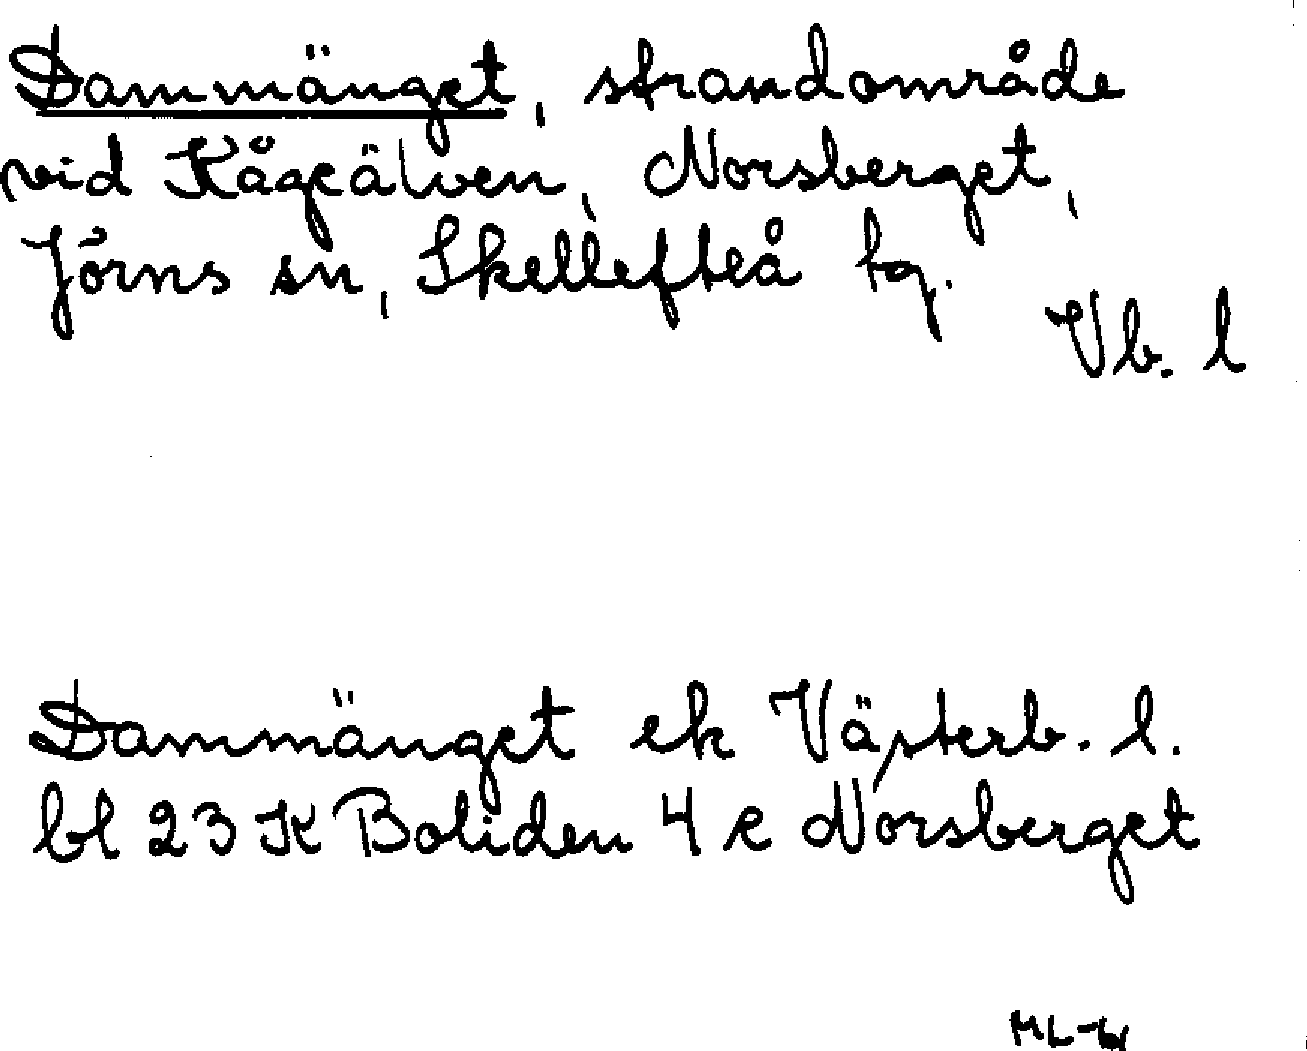 Dammänget, strandområde
vid Kågeälven, Norsberget,
Jörns sn, Skellefteå tg.
Vb. l
Dammänget ek Västerb. l.
bl 23 K Boliden 4 e Norsberget